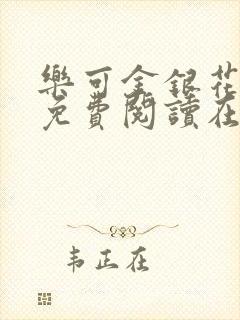 樂可金銀花
免費閱讀在
韦正在